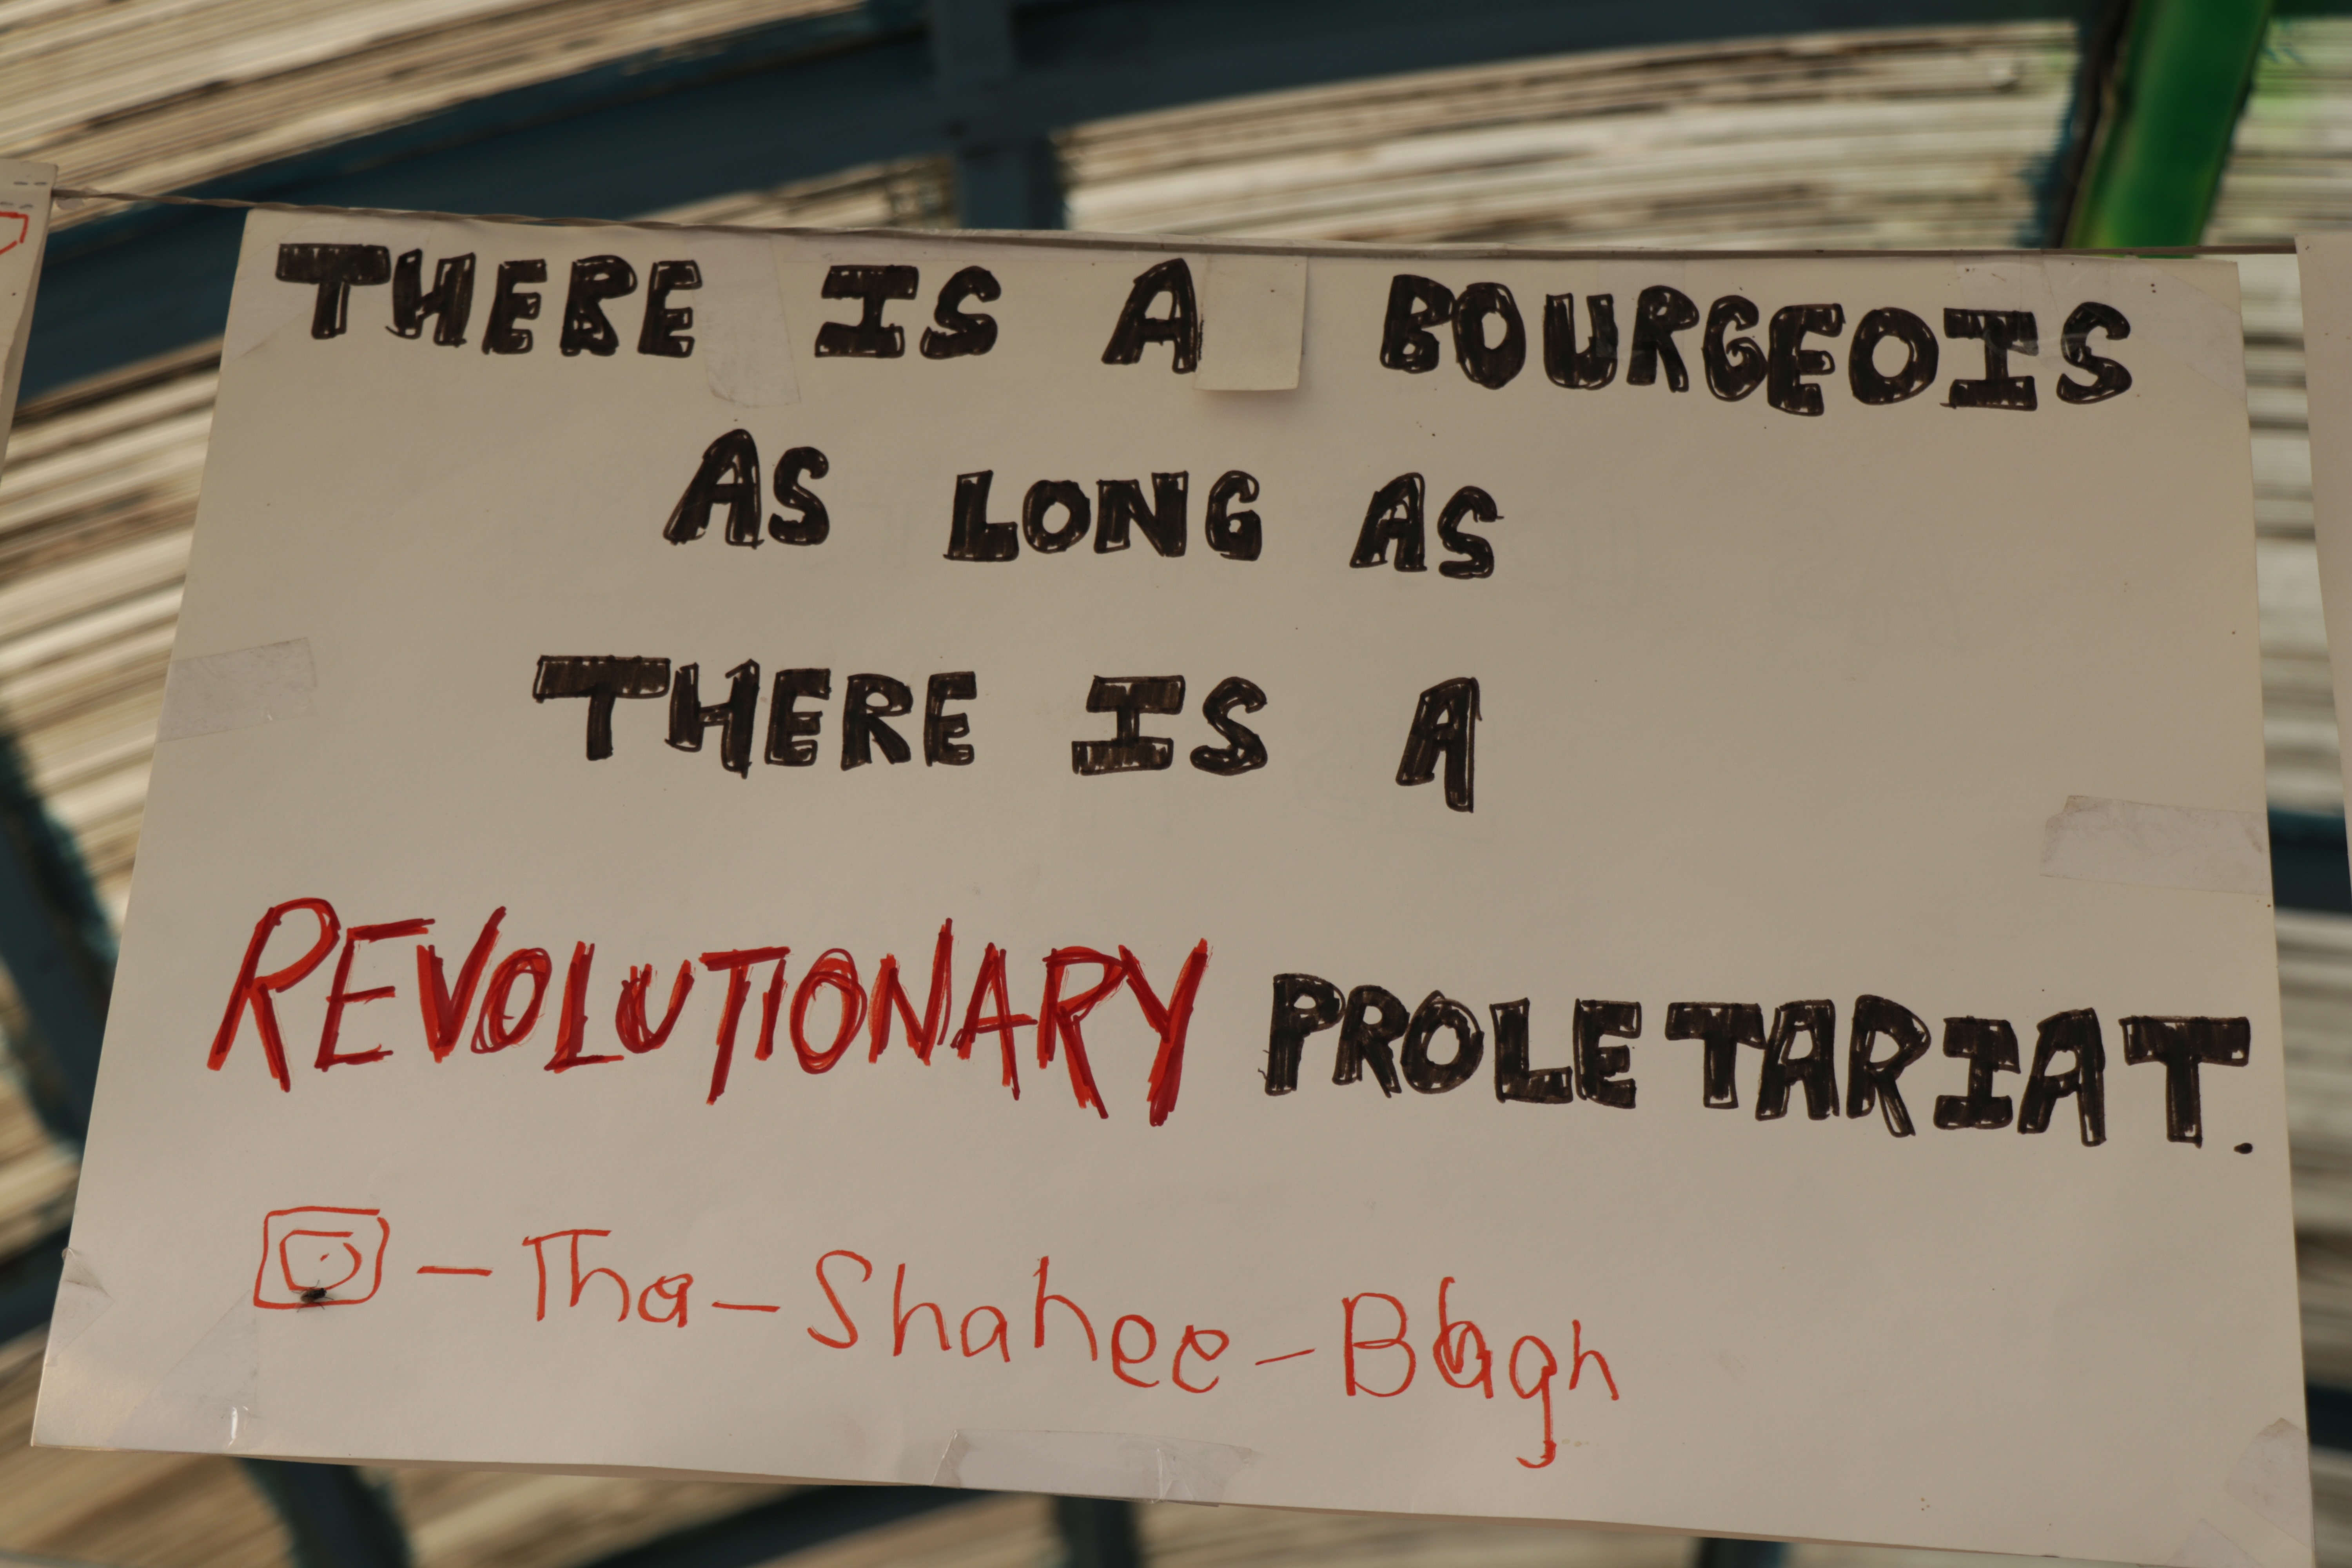 THERE IS A BOURGEOIS
AS LONG AS
THERE IS A
REVOLUTIONARY PROLETARIAT.
- Tha - Shahee - Bagh